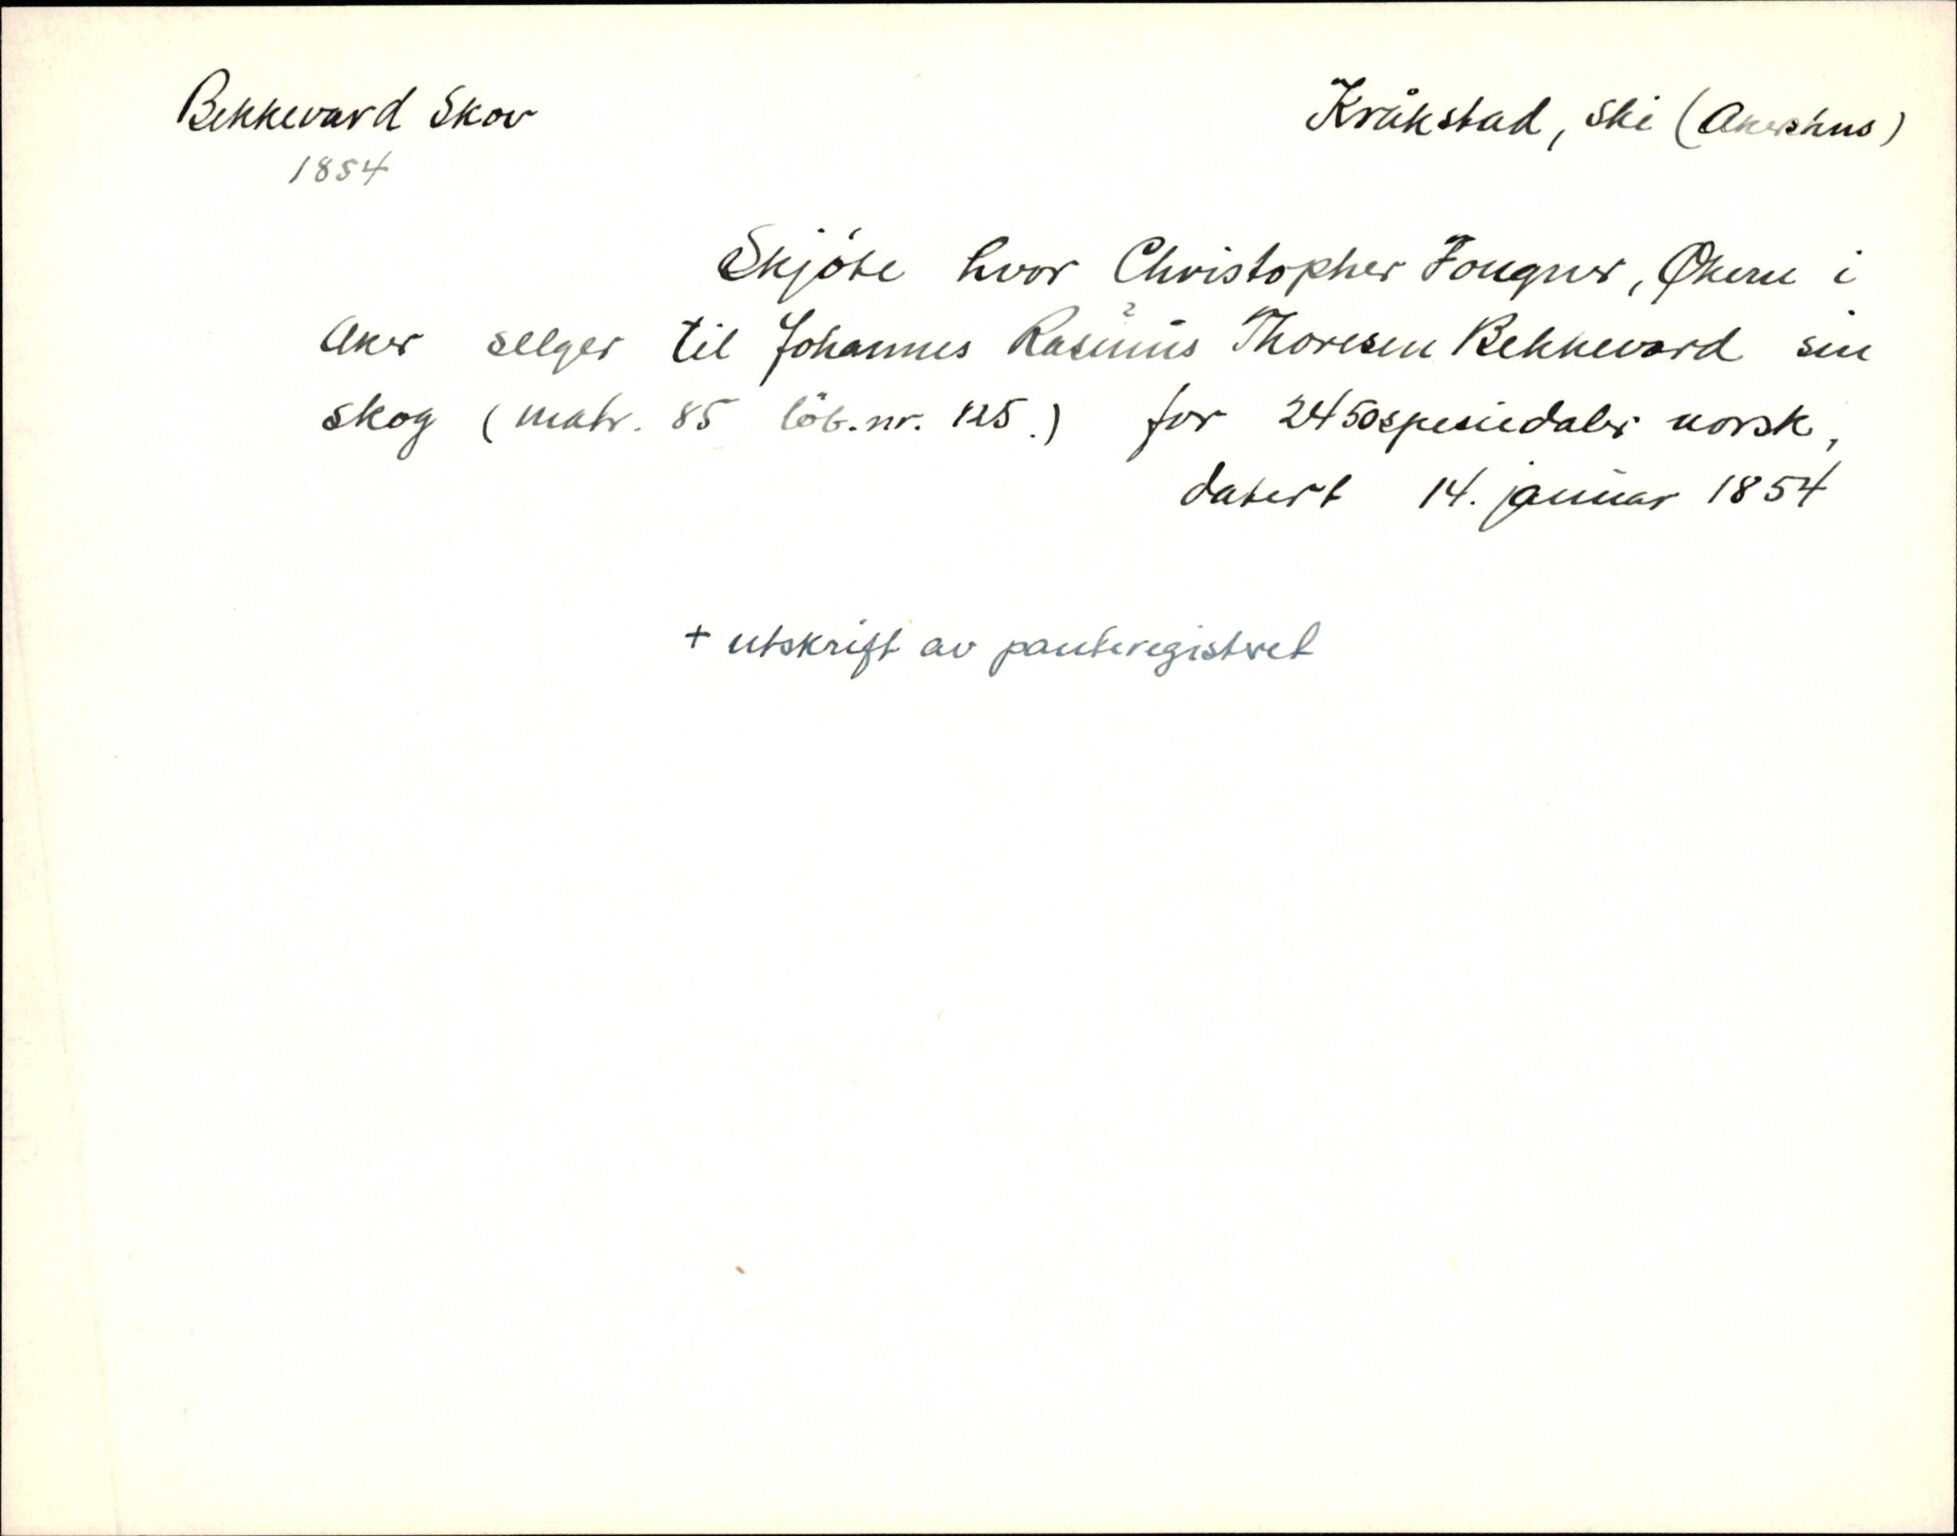 Bekkevard Skov
Kråkstad, Ski (Akershus)
1854
Skjöte hvor Christopher Fougner, Økern i
Aker selger til Johannes Rasmus ? Thoresen Bekkevard sin
skog (matr. 85 löb.nr. 125.) for 2450 spesiedaler norsk,
datert 14. januar 1854
+ utskrift av panteregistret